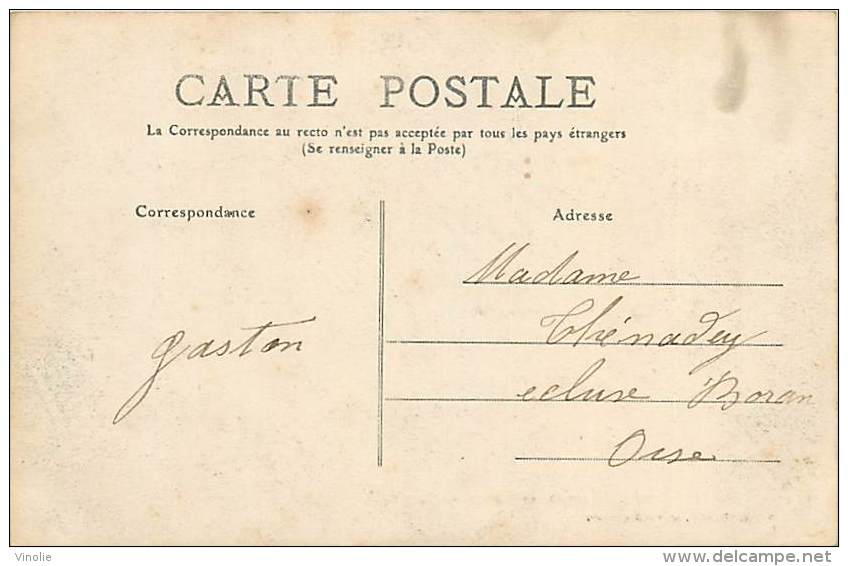 CARTE POSTALE
La Correspondance au recto n'est pas acceptée par tous les pays étrangers
(Se renseigner à la Poste)
Correspondance
Adresse
gaston
Madame
Thénadey
ecluse Boran
Oise
Vinolie
delcampe.net